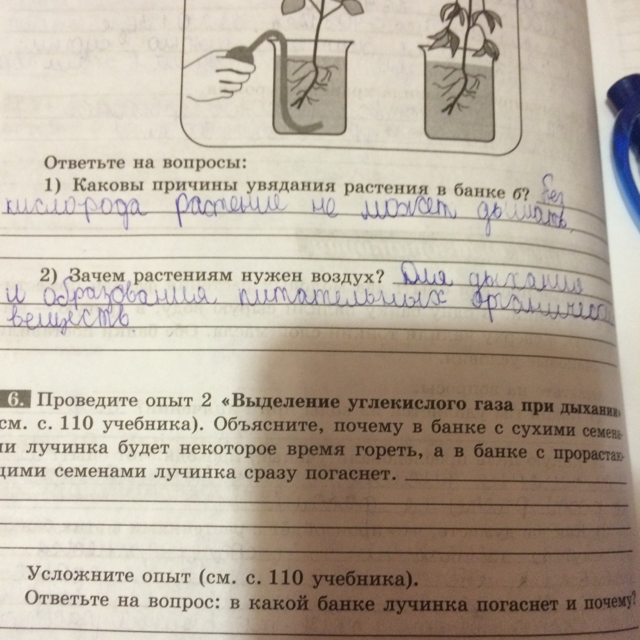 Ответьте на вопросы:
1) Каковы причины увядания растения в банке б? без
кислорода растение не может дышать,
2) Зачем растениям нужен воздух? Для дыхания
и образования питательных органически
веществ
6. Проведите опыт 2 «Выделение углекислого газа при дыхании»
см. с. 110 учебника). Объясните, почему в банке с сухими семена-
ми лучинка будет некоторое время гореть, а в банке с прорастаю-
щими семенами лучинка сразу погаснет.
Усложните опыт (см. с. 110 учебника).
Ответьте на вопрос: в какой банке лучинка погаснет и почему?